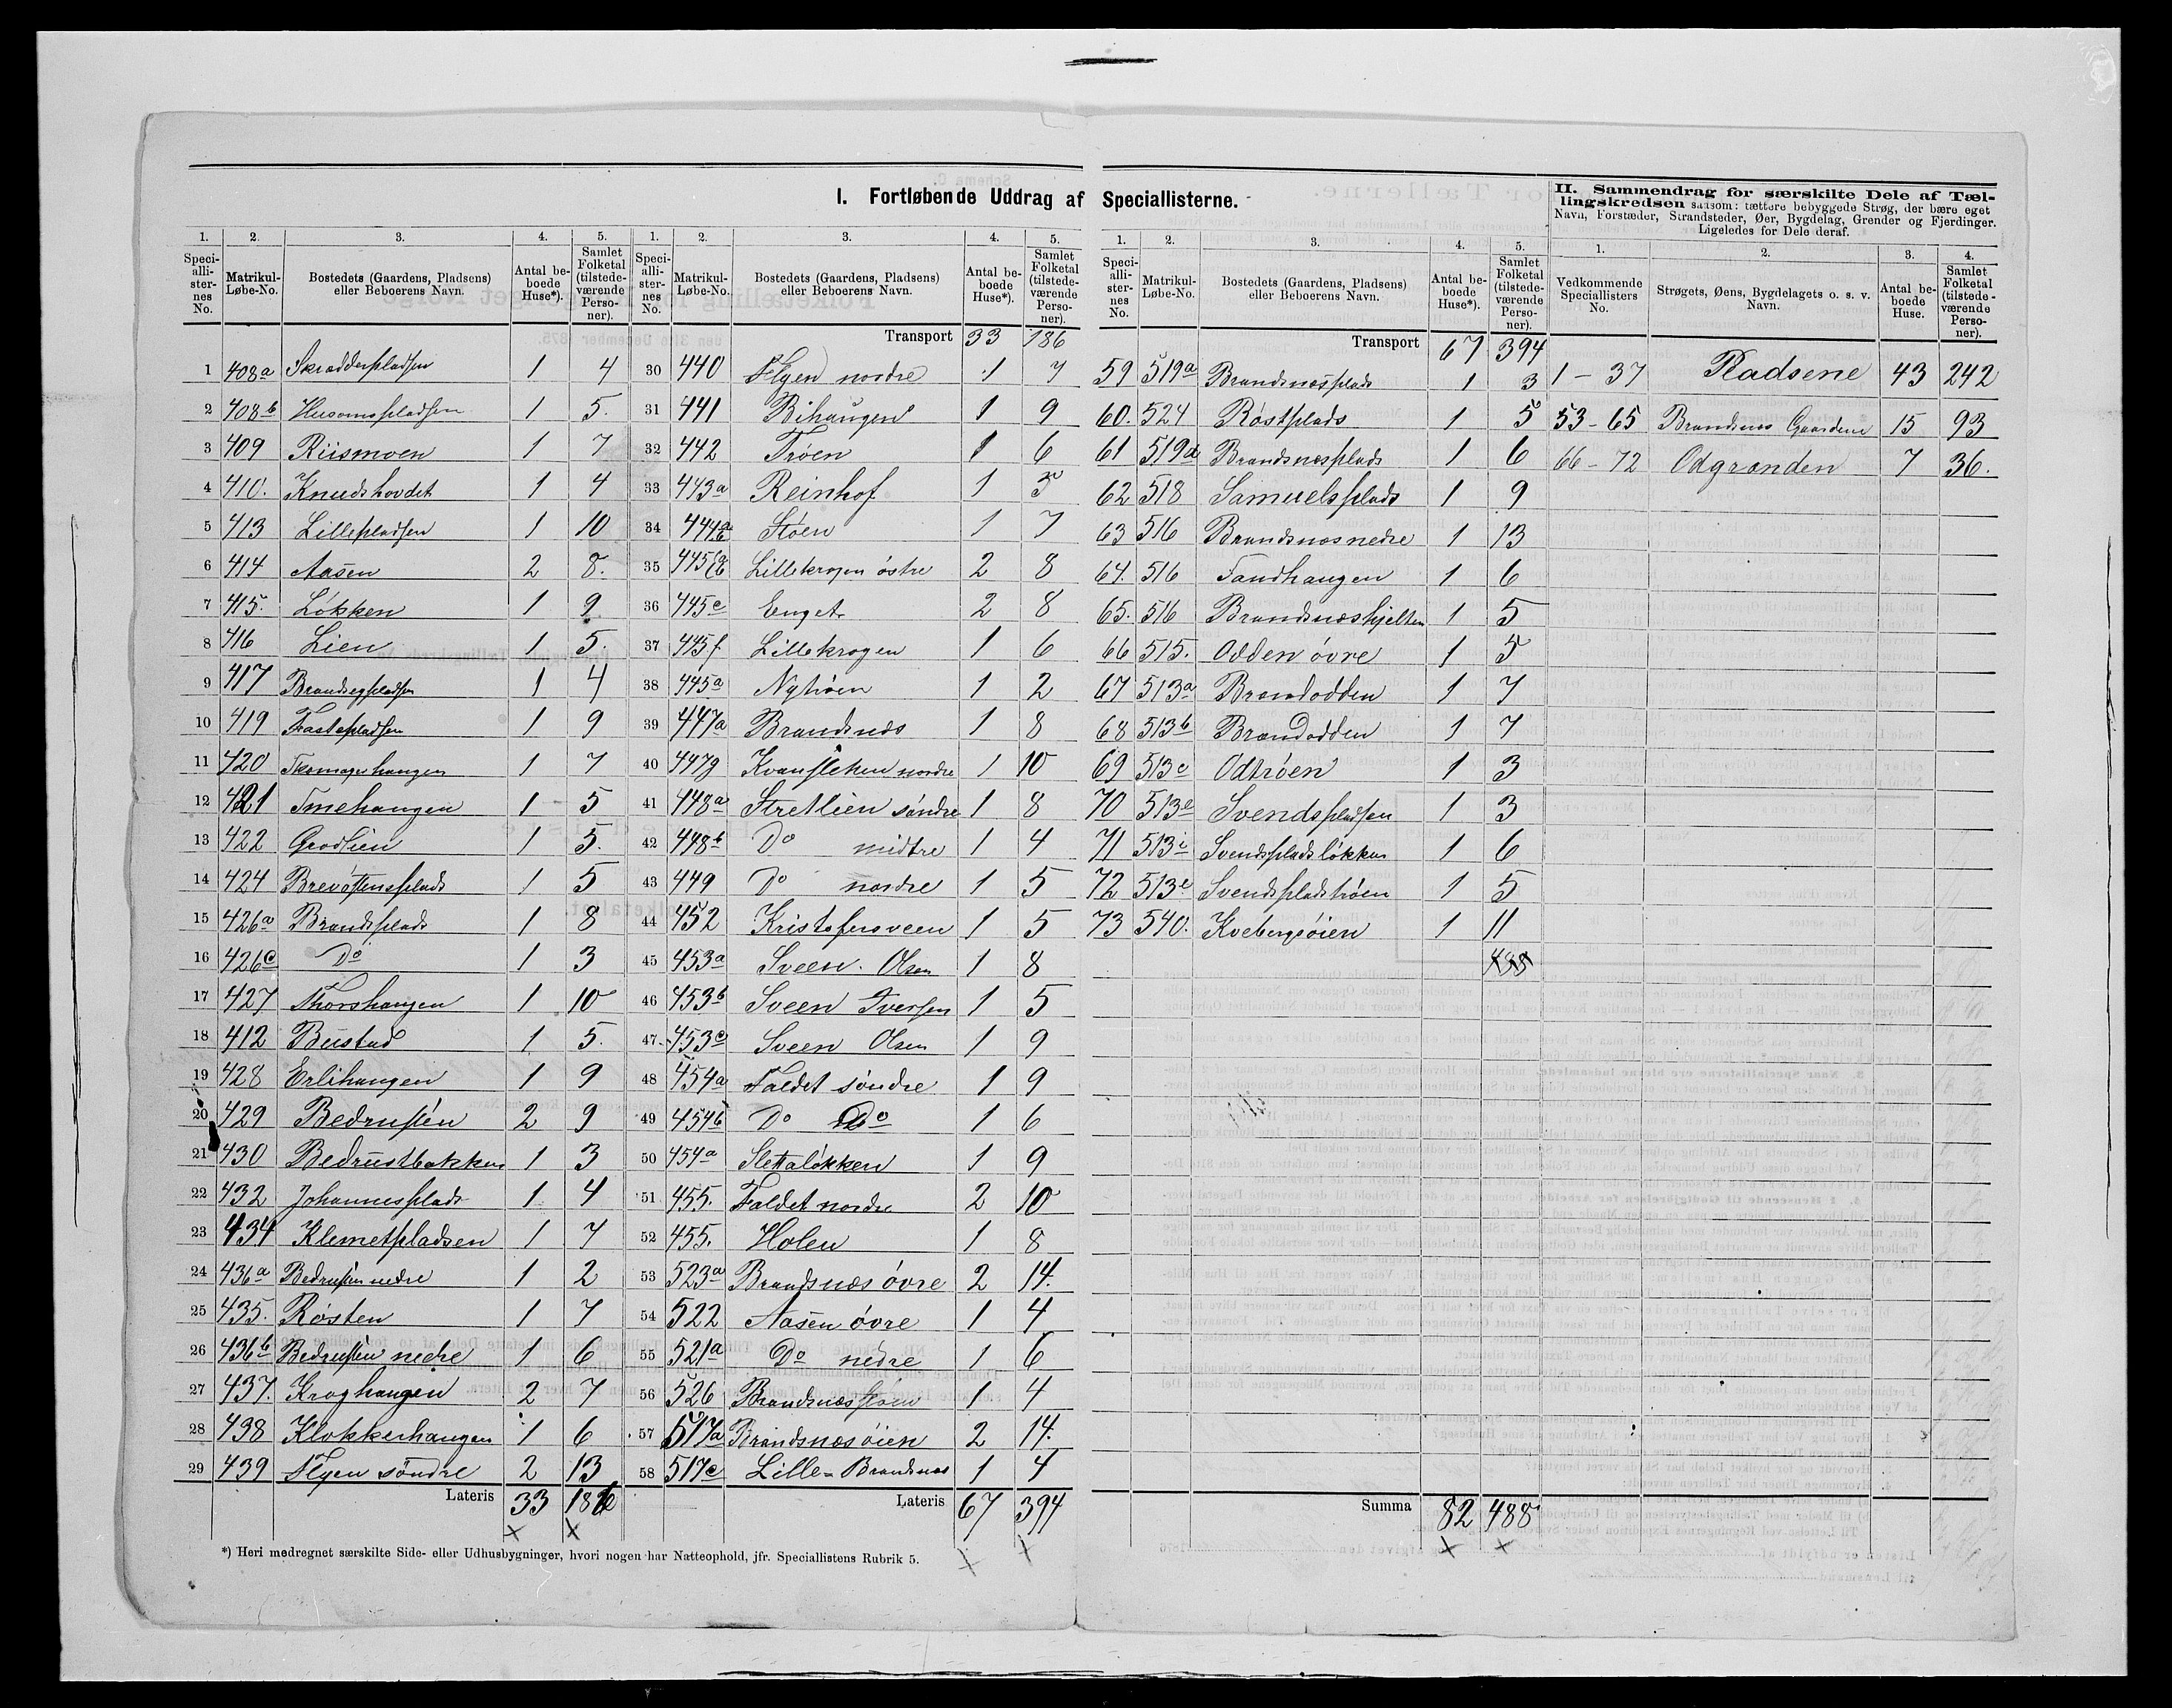 I. Fortløbende Uddrag af Speciallisterne.
1. 2. 3. 4. 5.
Specialli-sternes No. Matrikul-Løbe-No. Bostedets (Gaardens, Pladsens) eller Beboerens Navn. Antal beboede Huse*). Samlet Folketal (tilstedeværende Personer).
1 408a Skrædderpladsen 1 4
2 408b Husomspladsen 1 5.
3 409 Riismoen 1 7
4 410. Knudshovdet 1 4
5 413 Lillepladsen 1 10
6 414 Aasen 2 8.
7 415. Løkken 1 9
8 416 Lien 1 5.
9 417 1 4
10 419 1 9
11 420 Skomagerhaugen 1 7
12 421 Smehaugen 1 5
13 422 Grodlien 1 5.
14 424 1 5
15 426a Brandsplads 1 8
16 426c Do 1 3
17 427 Thorshaugen 1 10
18 412 Bustad 1 5.
19 428 Erlihaugen 1 9
20 429 Bedrusten 2 9
21 430 Bedrustbakken 1 3
22 432 Johannesplads 1 4
23 434 Klemetpladsen 1 7
24 436a Bedrusten nedre 1 2
25 435. Røsten 1 7
26 436b Bedrusten nedre 1 6
27 437. Kroghaugen 2 7
28 438 Klokkerhaugen 1 6
29 439 Flyen söndre 2 13
Lateris 33 186
*) Heri medregnet særskilte Side- eller Udhusbygninger, hvori nogen har Natteophold, jfr. Speciallistens Rubrik 5.
1. 2. 3. 4. 5.
Specialli-sternes No. Matrikul-Løbe-No. Bostedets (Gaardens, Pladsens) eller Beboerens Navn. Antal beboede Huse*). Samlet Folketal (tilstedeværende Personer).
Transport 33 186
30 440 Flyen nordre 1 7
31 441 Bihaugen 1 9
32 442 Trøen 1 6
33 443a Reinhof 1 5
34 444 Støen 1 7
35 445 Lillekrogen østre 2 8
36 445e Enget 2 8
37 445f. Lillekrogen 1 6
38 445a Nytrøen 1 2
39 447a Brandsnæs 1 8
40 447g Kvansleken nordre 1 10
41 448a Stretlien söndre 1 8
42 448b Do midtre 1 4
43 449 Do nordre 1 5
44 452 Kristofersveen 1 5
45 453a Sveen. Olsen 1 8
46 453b Sveen Iversen 1 5
47 453c Sveen Olsen 1 9
48 454a Faldet söndre 1 9
49 454b Do Do 1 6
50 454a Slettaløkken 1 9
51 455. Faldet nordre 2 10
52 455. Holen 1 8
53 523a Brandsnæs övre 2 14.
54 522 Aasen övre 1 4
55 521a Do nedre 1 6
56 526 1 4
57 517a Brandsnæsöien 2 14.
58 517c Lille-Brandnæs 1 4
Lateris 67 394
1. 2. 3. 4. 5.
Specialli-sternes No. Matrikul-Løbe-No. Bostedets (Gaardens, Pladsens) eller Beboerens Navn. Antal beboede Huse*). Samlet Folketal (tilstedeværende Personer).
Transport 67 394
59 519a Brandsnæsplads 1 3
60. 524 Røstplads 1 5
61 519d Brandsnæsplads 1 6
62 518 Samuelsplads 1 9
63 516 Brandsnæs nedre 1 13
64. 516 Sandhaugen 1 6
65. 516 Brandsnæshjelten 1 5
66 515. Odden övre 1 5
67 513a Brandodden 1 7
68 513b Brandodden 1 7
69 513c Odtrøen 1 3
70 513e Svendspladsen 1 3
71 513i Svendspladsløkken 1 6
72 513e Svendspladstrøen 1 5
73 540. Kvebergsöien 1 11
488
Summa 82 488
II. Sammendrag for særskilte Dele af Tællingskredsen saasom: tættere bebyggede Strøg, der bære eget Navn, Forstæder, Strandsteder, Øer, Bygdelag, Grender og Fjerdinger. Ligeledes for Dele deraf.
1. 2. 3. 4.
Vedkommende Speciallisters No. Strøgets, Øens, Bygdelagets o. s. v. Navn. Antal beboede Huse. Samlet Folketal (tilstedeværende Personer).
1 - 37 Pladsene 43 242
53 - 65 Brandnæs Gaardene 15 93
66 - 72 Odgrænden 7 36.